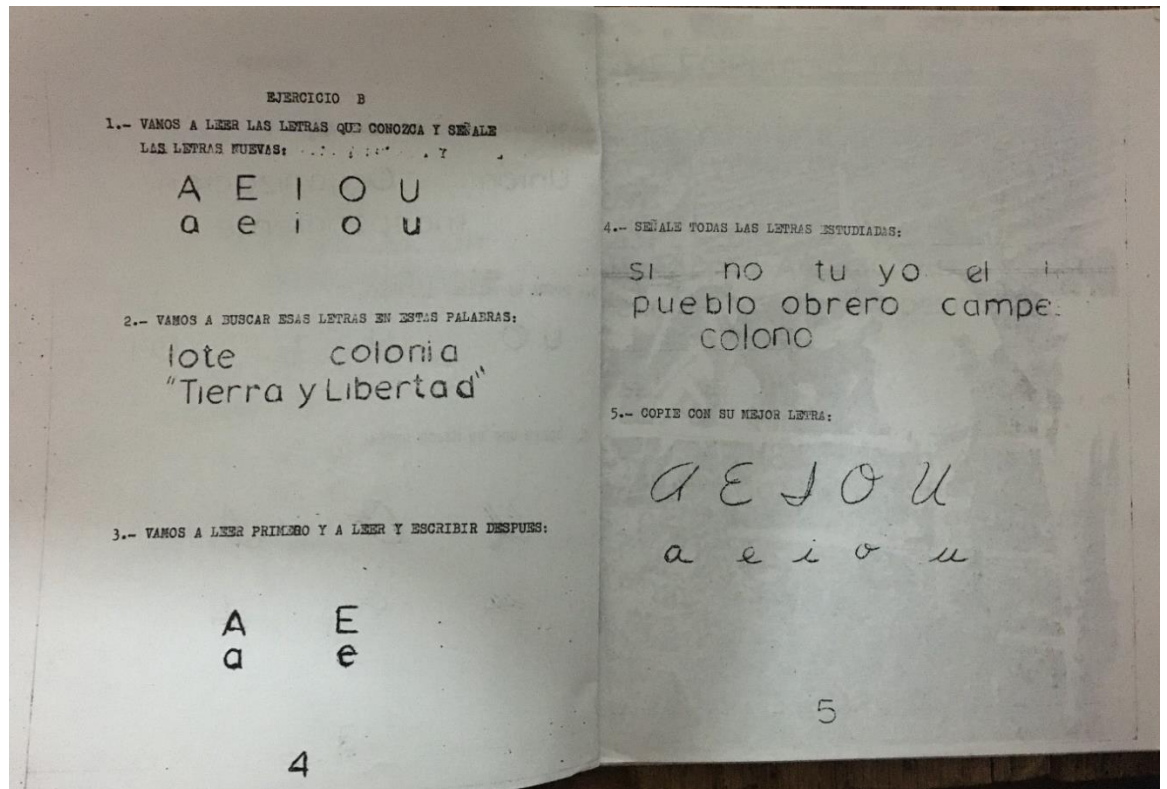 EJERCICIO B
1.- VAMOS A LEER LAS LETRAS QUE CONOZCA Y SEÑALE
LAS LETRAS NUEVAS:
A E I O U
a e i o u
2.- VAMOS A BUSCAR ESAS LETRAS EN ESTAS PALABRAS:
lote colonia
"Tierra y Libertad"
3.- VAMOS A LEER PRIMERO Y A LEER Y ESCRIBIR DESPUES:
A E
a e
4
4.- SEÑALE TODAS LAS LETRAS ESTUDIADAS:
si no tu yo el
pueblo obrero campe
colono
5.- COPIE CON SU MEJOR LETRA:
A E I O U
a e i o u
5